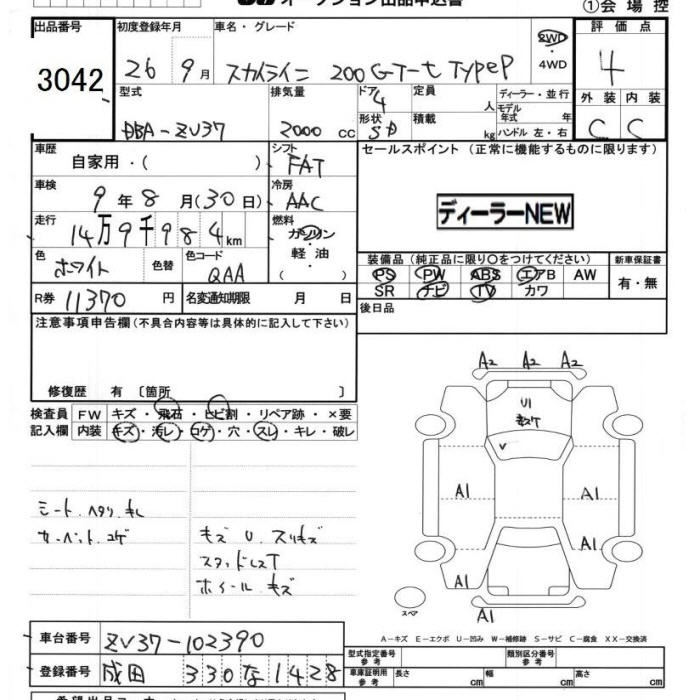 オークション出品申込書
①会場控
出品番号 初度登録年月 車名・グレード 評価点
3042 26 9月 スカイライン 200GT-t TypeP 2WD・4WD 4
型式 排気量 ドア 4 定員 人 ディーラー・並行 外装 内装
DBA-ZV37 2000 cc 形状 SD 積載 kg モデル年式 年 ハンドル 左・右 C C
車歴 自家用・( ) シフト FAT セールスポイント (正常に機能するものに限ります)
車検 9年8月(30日) 冷房 AAC ディーラーNEW
走行 14万9千984km 燃料 ガソリン・軽油・( )
色 ホワイト 色替 色コード QAA 装備品(純正品に限り○をつけてください) 新車保証書
PS PW ABS エアB AW 有・無
SR ナビ TV カワ
R券 11370円 名変通知期限 月 日 後日品
注意事項申告欄(不具合内容等は具体的に記入して下さい)
修復歴 有 〔箇所 〕
検査員 FW キズ・飛石・ヒビ割・リペア跡・×要
記入欄 内装 キズ・汚レ・コゲ・穴・スレ・キレ・破レ
シート.ヘタリ.キレ
カーペット.コゲ
キズ U スリキズ
スタッドレスT
ホイール.キズ
A2 A2 A2
U1
キズケ
A1 A1
A1
A1
A1
スペア
A-キズ E-エクボ U-凹み W-補修跡 S-サビ C-腐食 XX-交換済
車台番号 ZV37-102390 型式指定番号 参考 類別区分番号 参考
登録番号 成田 330 な 1428 車庫証明用 参考 長さ cm 幅 cm 高さ cm